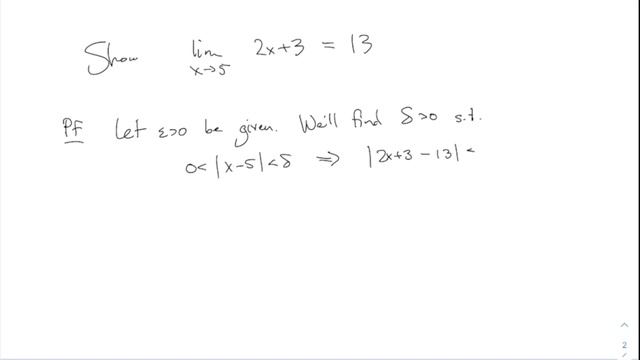 Show lim x→5 2x+3 = 13
Pf Let ε>0 be given. We'll find δ>0 s.t.
0< |x-5| < δ ⇒ |2x+3 - 13| <
2